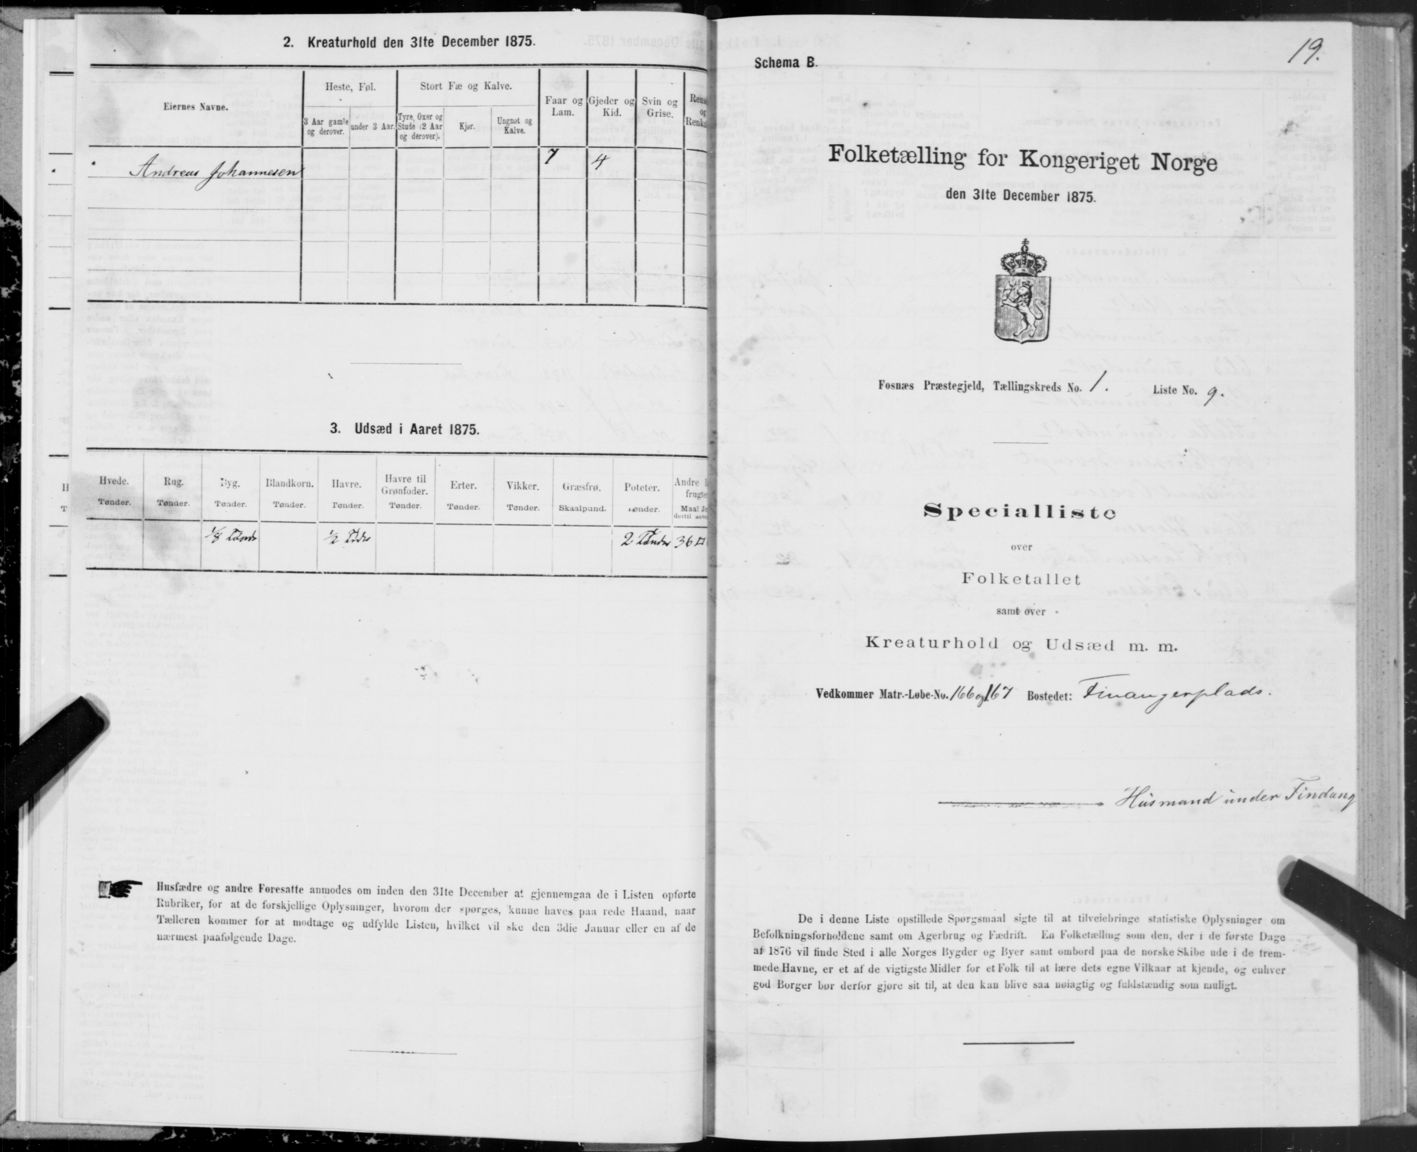 2. Kreaturhold den 31te December 1875.
Eiernes Navne.
Heste, Føl.
Stort Fæ og Kalve.
Faar og Lam.
Gjeder og Kid.
Svin og Grise.
3 Aar gamle og derover.
under 3 Aar.
Tyre, Oxer og Stude (2 Aar og derover).
Kjør.
Ungnøt og Kalve.
Andreas Johannesen 7 4
3. Udsæd i Aaret 1875.
Hvede. Rug. Byg. Blandkorn. Havre. Havre til Grønfoder. Erter. Vikker. Græsfrø. Poteter. Andre
Tønder. Tønder. Tønder. Tønder. Tønder. Tønder. Tønder. Tønder. Skaalpund. Tønder. Maal
1/8 1/2 2 Tønder 36
Husfædre og andre Foresatte anmodes om inden den 31te December at gjennemgaa de i Listen opførte
Rubriker, for at de forskjellige Oplysninger, hvorom der spørges, kunne haves paa rede Haand, naar
Tælleren kommer for at modtage og udfylde Listen, hvilket vil ske den 3die Januar eller en af de
nærmest paafølgende Dage.
19.
Schema B.
Folketælling for Kongeriget Norge
den 31te December 1875.
Fosnæs Præstegjeld, Tællingskreds No. 1. Liste No. 9.
Specialliste
over
Folketallet
samt over
Kreaturhold og Udsæd m. m.
Vedkommer Matr.-Løbe-No. 166 og 167 Bostedet: Finangerplads.
Husmand under Findang
De i denne Liste opstillede Spørgsmaal sigte til at tilveiebringe statistiske Oplysninger om
Befolkningsforholdene samt om Agerbrug og Fædrift. En Folketælling som den, der i de første Dage
af 1876 vil finde Sted i alle Norges Bygder og Byer samt ombord paa de norske Skibe ude i de frem-
mede Havne, er et af de vigtigste Midler for et Folk til at lære dets egne Vilkaar at kjende, og enhver
god Borger bør derfor gjøre sit til, at den kan blive saa nøiagtig og fuldstændig som muligt.